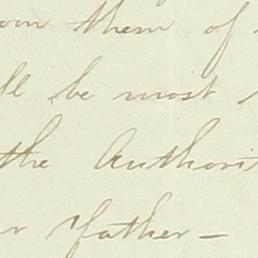 them of
ll be most
the Authori
r father —